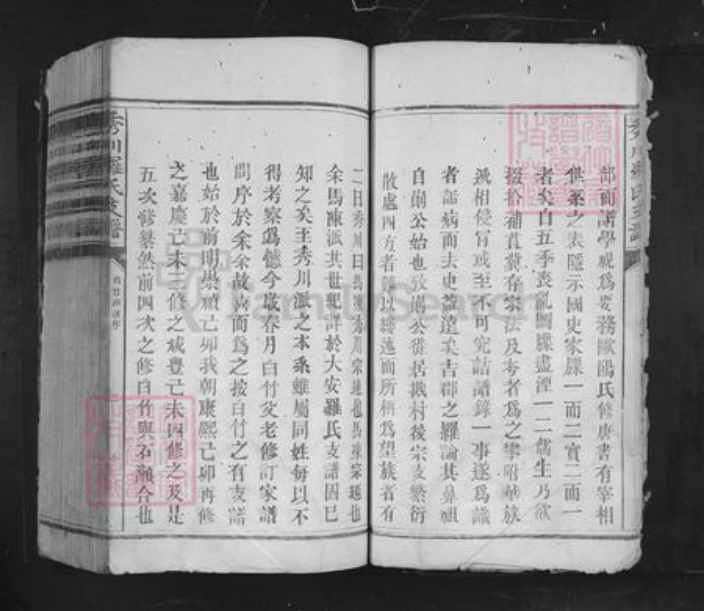 部而譜學視爲要務歐陽氏修唐書有宰相
世系之表隱示國史家牒一而二實二而一
者矣自五季喪亂圖牒盡湮一二儒生乃欲
掇拾補苴冀存宗法及夸者爲之攀附華族
遞相侵冒或至不可究詰譜錄一事遂爲識
者詬病而去史益遠矣吉郡之羅論其鼻祖
自崩公始也攷崩公徙居戡村後宗支繁衍
散處四方者難以縷述而所稱爲望族者有
二曰秀川曰馬凍秀川宗
余馬凍派其世紀詳於大安羅氏支譜因已
知之矣至秀川派之本系雖屬同姓每以不
得考察爲憾今歲春月白竹父老修訂家譜
問序於余余故喜而爲之按白竹之有支譜
也始於前明崇禎己卯我朝康熙己卯再修
之嘉慶己未三修之咸豐己未四修之及是
五次修纂然前四次之修白竹與石瀨合也
秀川羅氏支譜
FamilySearch